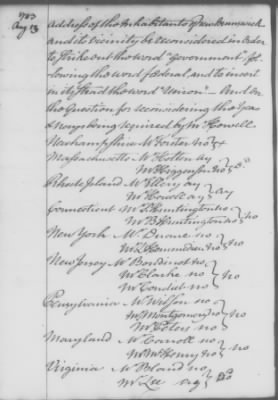 1783
Aug 13
address of the Inhabitants of New Brunswick
and its vicinity be reconsidered in order
to strike out the word "government" fol
lowing the word federal and to insert
in its stead the word "Union" — And on
the Question for reconsidering the yeas
& nays being required by Mr Howell
Newhampshire Mr Foster no } *
Massachusetts Mr Holten ay
Mr Higginson no } Do
Rhode Island Mr Ellery ay
Mr Howell ay } ay
Connecticut Mr S Huntington no
Mr B Huntington no } no
New York Mr Duane no
Mr L'Hommedieu no } no
New Jersey Mr Boudinot no
Mr Clarke no
Mr Condict no } no
Pensylvania Mr Wilson no
Mr Montgomery no
Mr Peters no } no
Maryland Mr Carroll no
Mr McHenry no } no
Virginia Mr Bland no
Mr Lee ay } Do